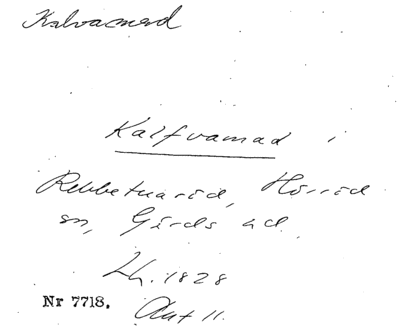 Kalvamad
Kalfvamad i
Rebbetuaröd, Hörröd
sn, Gärds hd.
Lh. 1828
Nr 7718. Akt 11.